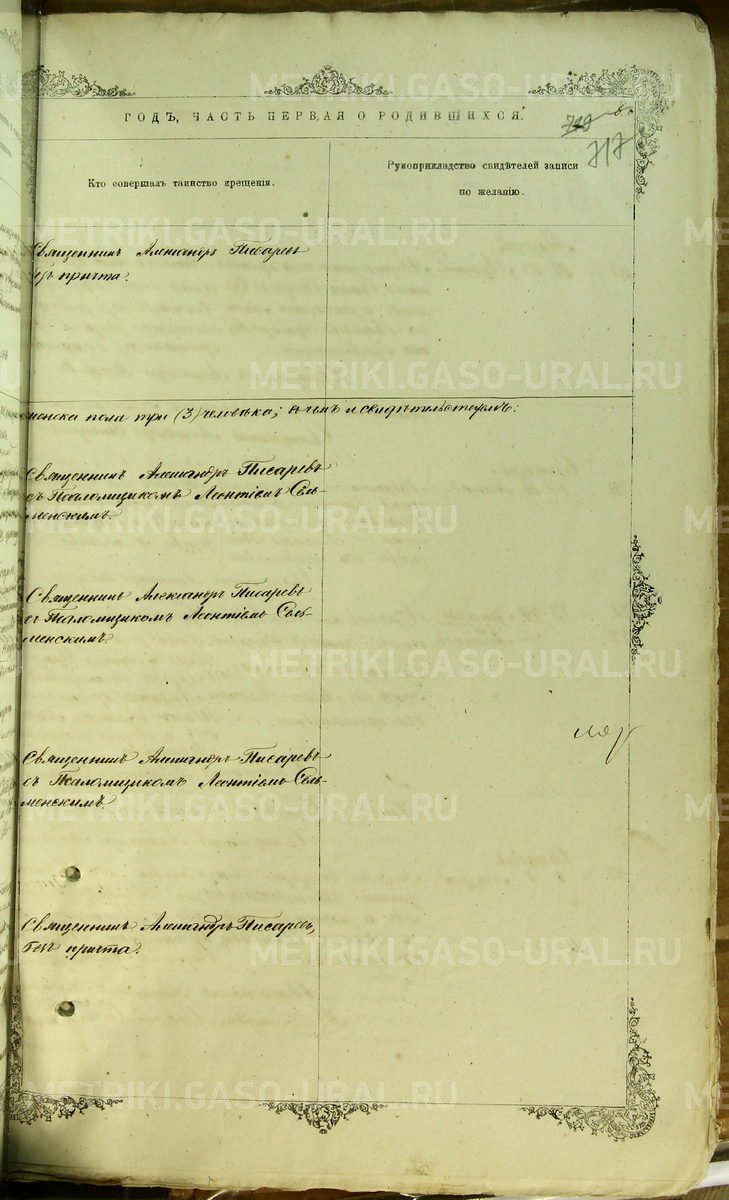 ГОДЪ, ЧАСТЬ ПЕРВАЯ О РОДИВШИХСЯ.
717
Кто совершалъ таинство крещенія.
Рукоприкладство свидѣтелей записи
по желанію.
Священникъ Александръ Писаревъ
безъ причта.
женска пола три (3) человѣка; въ чемъ и свидѣтельствуемъ:
Священникъ Александръ Писаревъ
съ Псаломщикомъ Леонтіемъ Сель-
менскимъ.
Священникъ Александръ Писаревъ
съ Псаломщикомъ Леонтіемъ Сель-
менскимъ.
Священникъ Александръ Писаревъ
съ Псаломщикомъ Леонтіемъ Сель-
менскимъ.
Священникъ Александръ Писаревъ,
безъ причта.
METRIKI.GASO-URAL.RU